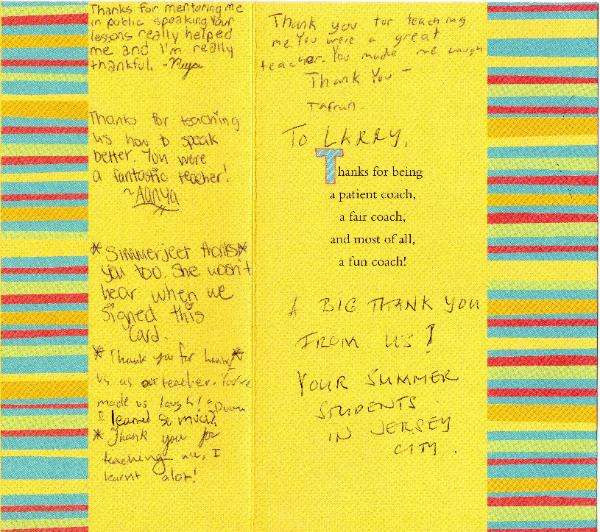 Thanks for mentoring me
in public speaking. Your
lessons really helped
me and I'm really
thankful. -
Thanks for teaching
us how to speak
better. You were
a fantastic teacher!
~ Aanya
* Simmerjeet thanks *
you too. She wasn't
hear when we
signed this
card.
* Thank you for *
us as our teacher. You've
made us laugh!
I learned so much.
* Thank you for
teaching me, I
learnt alot!
Thank you for teaching
me. You were a great
teacher. You made me laugh
Thank You -
To LARRY,
Thanks for being
a patient coach,
a fair coach,
and most of all,
a fun coach!
A BIG THANK YOU
FROM US!
YOUR SUMMER
STUDENTS
IN JERSEY
CITY.